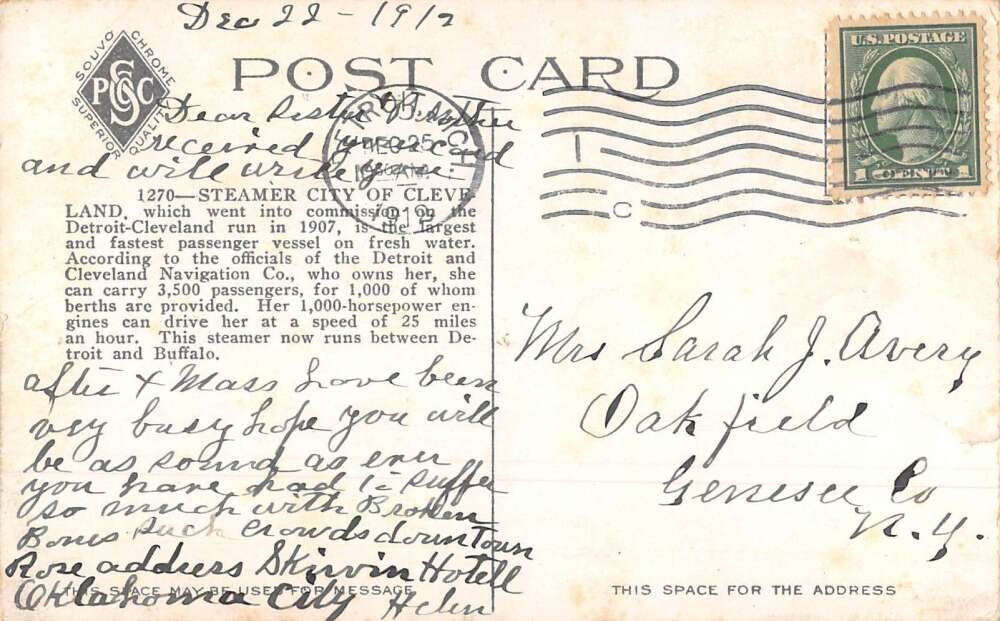 Dec 22 - 1912
SOUVO CHROME
SUPERIOR QUALITY
PSCC
POST CARD
U.S. POSTAGE
1 CENT 1
DEC 25
MICH.
C
Dear Sister
received your card
and will write you
1270—STEAMER CITY OF CLEVE-
LAND, which went into commission on the
Detroit-Cleveland run in 1907, is the largest
and fastest passenger vessel on fresh water.
According to the officials of the Detroit and
Cleveland Navigation Co., who owns her, she
can carry 3,500 passengers, for 1,000 of whom
berths are provided. Her 1,000-horsepower en-
gines can drive her at a speed of 25 miles
an hour. This steamer now runs between De-
troit and Buffalo.
after X Mass have been
very busy hope you will
be as sound as ever
you have had to suffer
so much with Broken
Bones such crowds down Town
Rose address Skirvin Hotell
Oklahoma City Helen
THIS SPACE MAY BE USED FOR MESSAGE
Mrs Sarah J. Avery
Oakfield
Genesee Co
N.Y.
THIS SPACE FOR THE ADDRESS